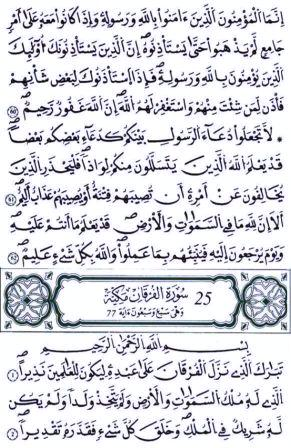 إِنَّمَا الْمُؤْمِنُونَ الَّذِينَ ءَامَنُوا بِاللَّهِ وَرَسُولِهِ وَإِذَا كَانُوا مَعَهُ عَلَى أَمْرٍ
جَامِعٍ لَّمْ يَذْهَبُوا حَتَّى يَسْتَأْذِنُوهُ إِنَّ الَّذِينَ يَسْتَأْذِنُونَكَ أُولَئِكَ
الَّذِينَ يُؤْمِنُونَ بِاللَّهِ وَرَسُولِهِ فَإِذَا اسْتَأْذَنُوكَ لِبَعْضِ شَأْنِهِمْ
فَأْذَن لِّمَن شِئْتَ مِنْهُمْ وَاسْتَغْفِرْ لَهُمُ اللَّهَ إِنَّ اللَّهَ غَفُورٌ رَّحِيمٌ
لَّا تَجْعَلُوا دُعَاءَ الرَّسُولِ بَيْنَكُمْ كَدُعَاءِ بَعْضِكُم بَعْضًا
قَدْ يَعْلَمُ اللَّهُ الَّذِينَ يَتَسَلَّلُونَ مِنكُمْ لِوَاذًا فَلْيَحْذَرِ الَّذِينَ
يُخَالِفُونَ عَنْ أَمْرِهِ أَن تُصِيبَهُمْ فِتْنَةٌ أَوْ يُصِيبَهُمْ عَذَابٌ أَلِيمٌ
أَلَا إِنَّ لِلَّهِ مَا فِي السَّمَوَاتِ وَالْأَرْضِ قَدْ يَعْلَمُ مَا أَنتُمْ عَلَيْهِ
وَيَوْمَ يُرْجَعُونَ إِلَيْهِ فَيُنَبِّئُهُم بِمَا عَمِلُوا وَاللَّهُ بِكُلِّ شَيْءٍ عَلِيمٌ
25 سُورَةُ الْفُرْقَانِ مَكِّيَّة
وَهْيَ سَبْعٌ وَسَبْعُونَ ءَايَة 77
بِسْمِ اللَّهِ الرَّحْمَنِ الرَّحِيمِ
تَبَارَكَ الَّذِي نَزَّلَ الْفُرْقَانَ عَلَى عَبْدِهِ لِيَكُونَ لِلْعَالَمِينَ نَذِيرًا
الَّذِي لَهُ مُلْكُ السَّمَوَاتِ وَالْأَرْضِ وَلَمْ يَتَّخِذْ وَلَدًا وَلَمْ يَكُن
لَّهُ شَرِيكٌ فِي الْمُلْكِ وَخَلَقَ كُلَّ شَيْءٍ فَقَدَّرَهُ تَقْدِيرًا